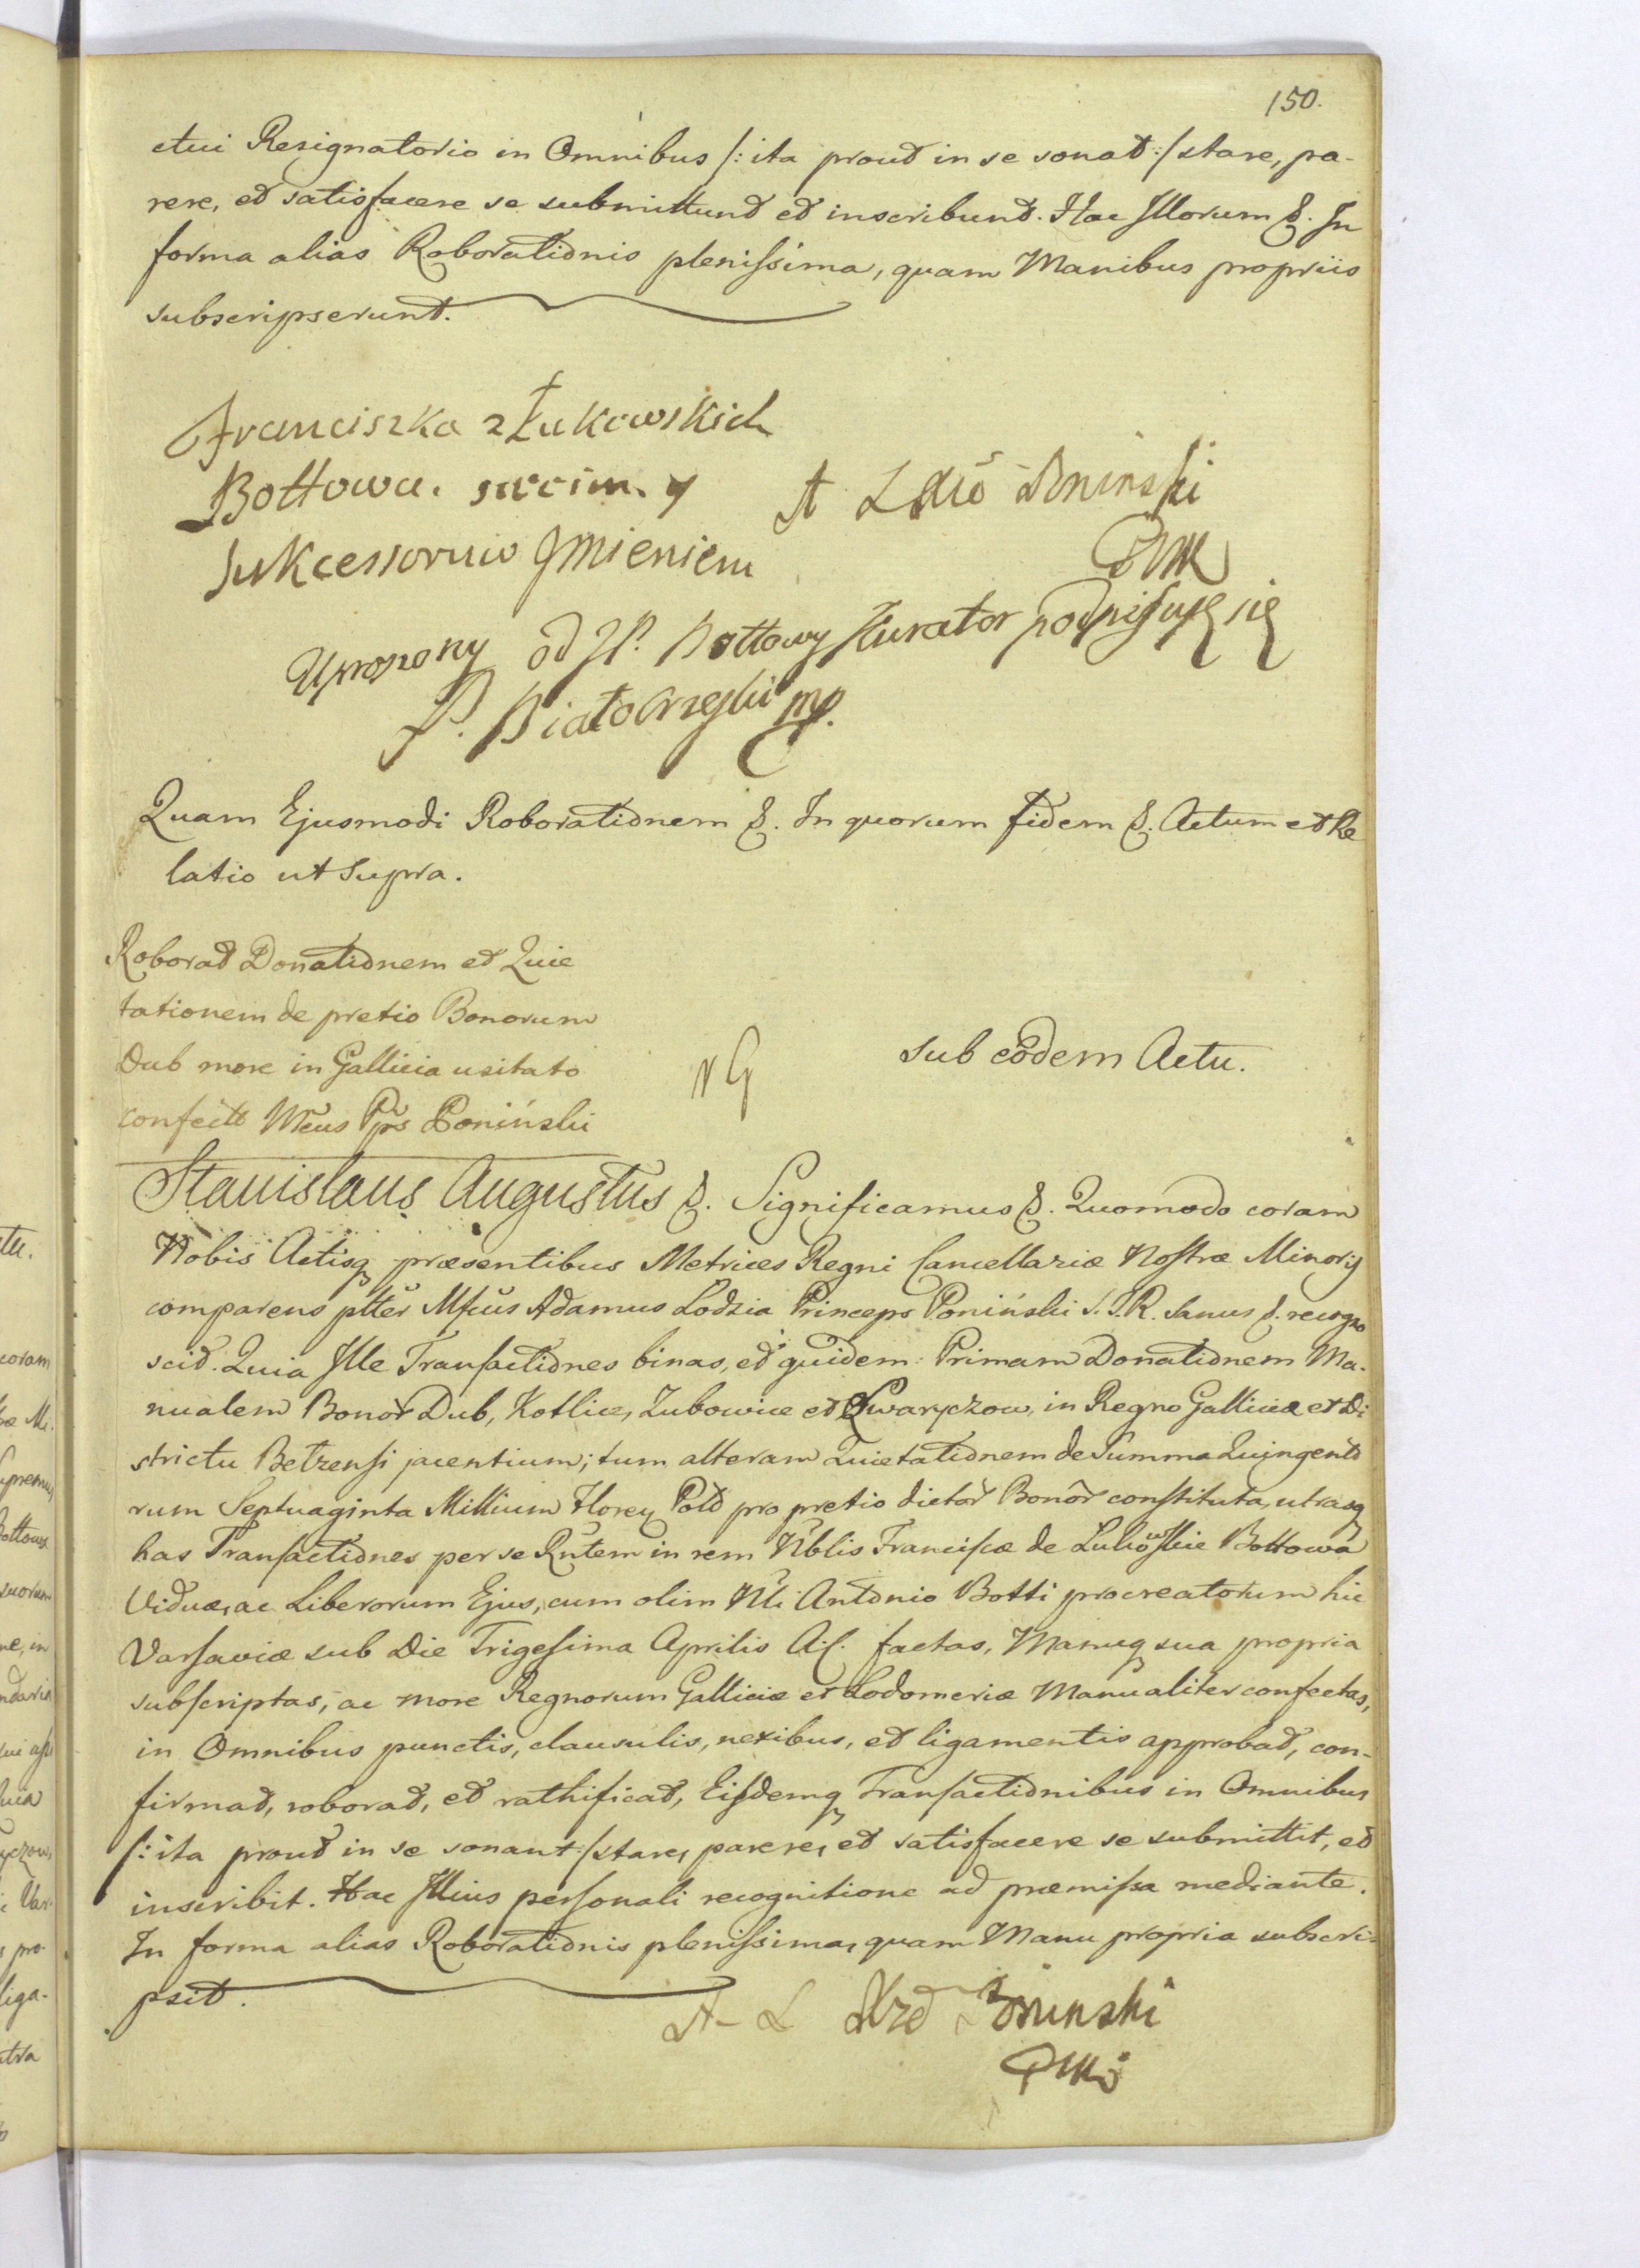 150.
ctui Resignatorio in Omnibus /: ita prout in se sonat :/ stare, pa-
rere, et satisfacere se submittunt et inscribunt. Hac Illorum &. In
forma alias Roborationis plenissima, quam Manibus propriis
subscripserunt.
Franciszka z Łukowskich
Bottowa. swoim. y
A Lodzia Poninski
Sukcessorow Jmieniem
Uproszony od JP. Bottowy Kurator podpisuję się
P. Białobrzeski mp.
Quam Ejusmodi Roborationem &. In quorum fidem &. Actum et Re
latio ut supra.
Roborat Donationem et Quie
tationem de pretio Bonorum
Dub more in Gallicia usitato
confect Mcus Pps Poniński
NG
sub eodem Actu.
Stanislaus Augustus &. Significamus &. Quomodo coram
Nobis Actisq præsentibus Metrices Regni Cancellariæ Nostræ Minoris
comparens plter Mfcus Adamus Lodzia Princeps Poniński S. P. R. Sanus &. recogno
scit. Quia Ille Transactiones binas, et quidem: Primam Donationem Ma-
nualem Bonor Dub, Kotlice, Zubowice et Swaryczow, in Regno Galliciæ et Di
strictu Betzensi jacentium; tum alteram Quietationem de Summa Quingento
rum Septuaginta Millium Floreň Pold pro pretio dictor Bonor constituta, utrasq
has Transactiones per se Rntem in rem Nblis Franciscæ de Lukowskie Bottowa
Viduæ, ac Liberorum Ejus, cum olim Nli Antonio Botti procreatorum hic
Varsaviæ sub Die Trigesima Aprilis A. C. factas, Manuq sua propria
subscriptas, ac more Regnorum Galliciæ et Lodomeriæ Manualiter confectas,
in Omnibus punctis, clausulis, nexibus, et ligamentis approbat, con-
firmat, roborat, et rathificat, Eisdemq Transactionibus in Omnibus
/: ita prout in se sonant :/ stare, parere, et satisfacere se submittit, et
inscribit. Hac Illius personali recognitione ad præmissa mediante.
In forma alias Roborationis plenissima, quam Manu propria subscri-
psit.
A L Poninski